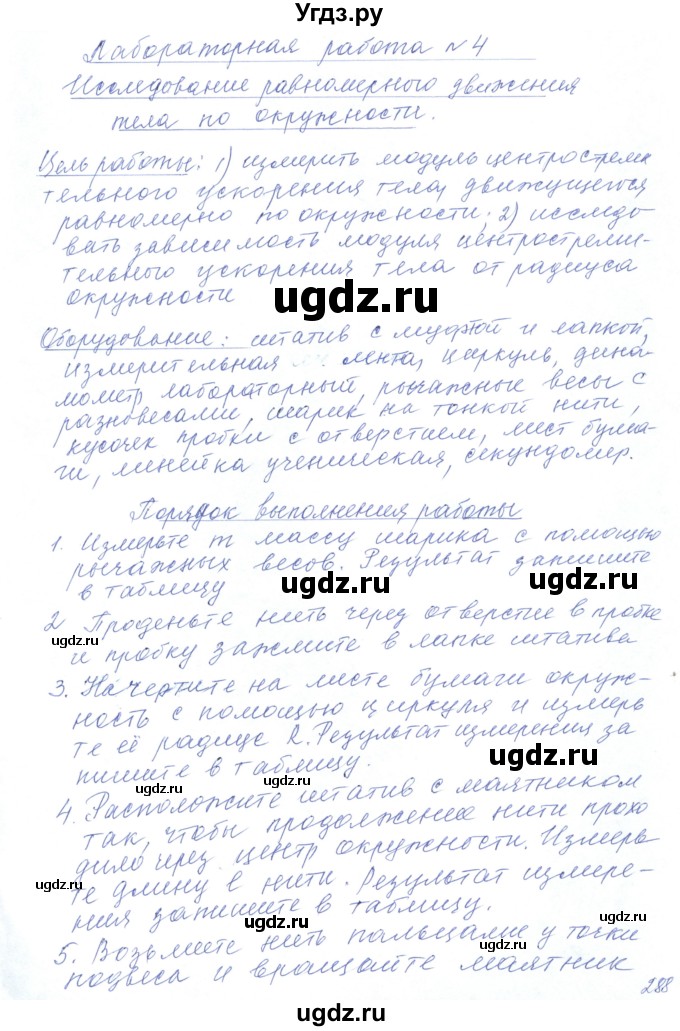 Угдз.ру
Лабораторная работа №4
Исследование равномерного движения
тела по окружности.
Цель работы: 1) измерить модуль центростреми
тельного ускорения тела, движущегося
равномерно по окружности; 2) исследо-
вать зависимость модуля центростреми-
тельного ускорения тела от радиуса
окружности
ugdz.ru
Оборудование: штатив с муфтой и лапкой,
измерительная лента, циркуль, дина-
мометр лабораторный, рычажные весы с
разновесами, шарик на тонкой нити,
кусочек пробки с отверстием, лист бума-
ги, линейка ученическая, секундомер.
Порядок выполнения работы
1. Измерьте m массу шарика с помощью
рычажных весов. Результат запишите
в таблицу
ugdz.ru
2 Проденьте нить через отверстие в пробке
ugdz.ru
и пробку зажмите в лапке штатива
3. Начертите на листе бумаги окруж-
ность с помощью циркуля и измерь
те её радиус R. Результат измерения за
пишите в таблицу.
ugdz.ru
ugdz.ru
4. Расположите штатив с маятником
так, чтобы продолжение нити прохо
дило чрез центр окружности. Измерь
те длину l нити. Результат измере-
ugdz.ru
ния запишите в таблицу.
5. Возьмите нить пальцами у точки
подвеса и вращайте маятник
288
ugdz.ru
ugdz.ru